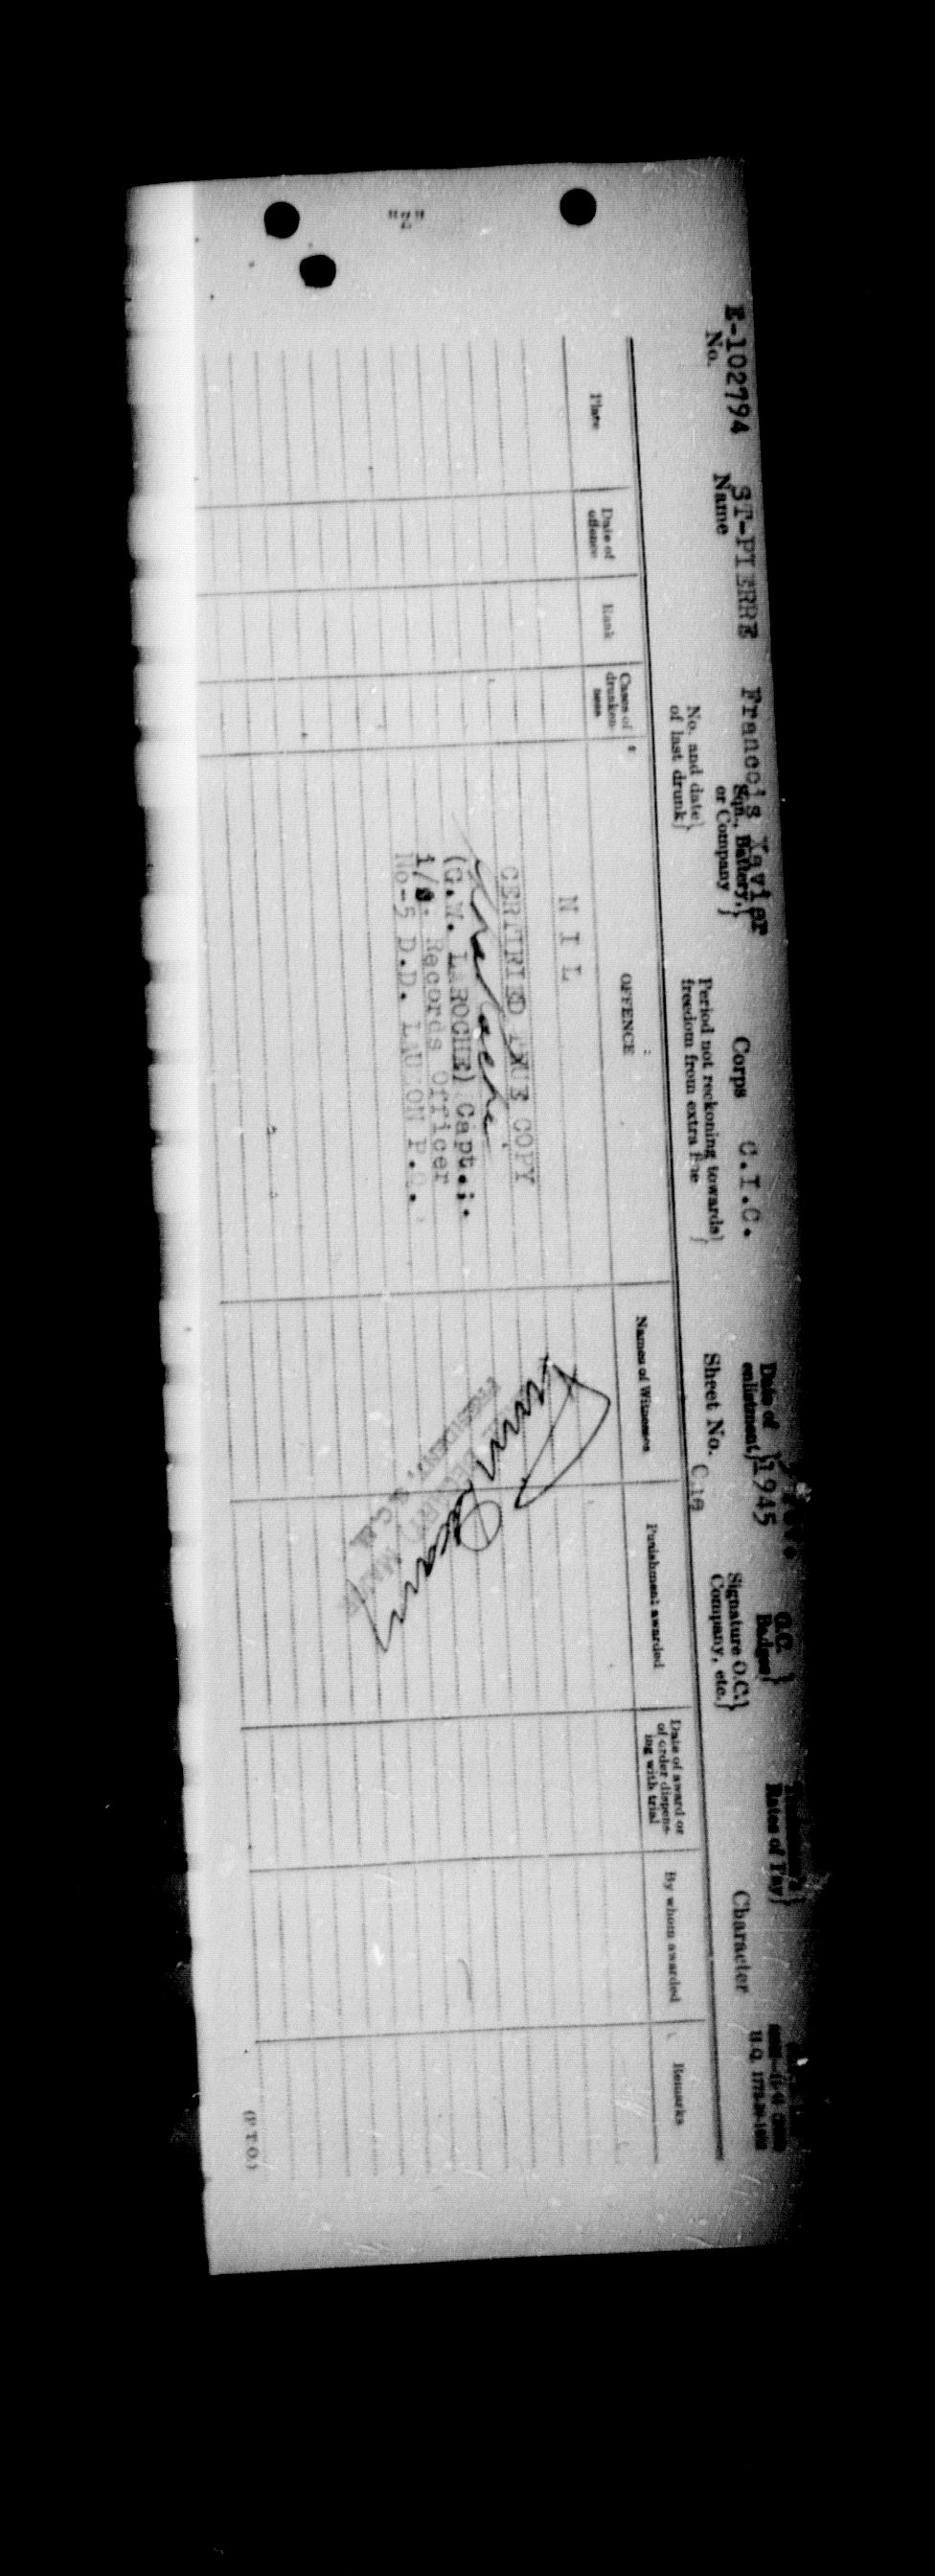 H.Q. 1772-39-1008
Date of enlistment} 1945
G.C. Badges}
Rates of Pay}
E-102794 ST-PIERRE Francois Xavier C.I.C.
No. Name Sqn., Battery, or Company} Corps
Sheet No. C.19
Signature O.C. Company, etc.}
Character
No. and date of last drunk}
Period not reckoning towards freedom from extra fine}
Place
Date of offence
Rank
Cases of drunkenness
OFFENCE
Names of Witnesses
Punishment awarded
Date of award or of order dispensing with trial
By whom awarded
Remarks
N I L
CERTIFIED TRUE COPY
(G.W. LAROCHE) Capt.;.
Records Officer
No-5 D.D. LAUZON P.Q.
PRESIDENT,
(P.T.O.)